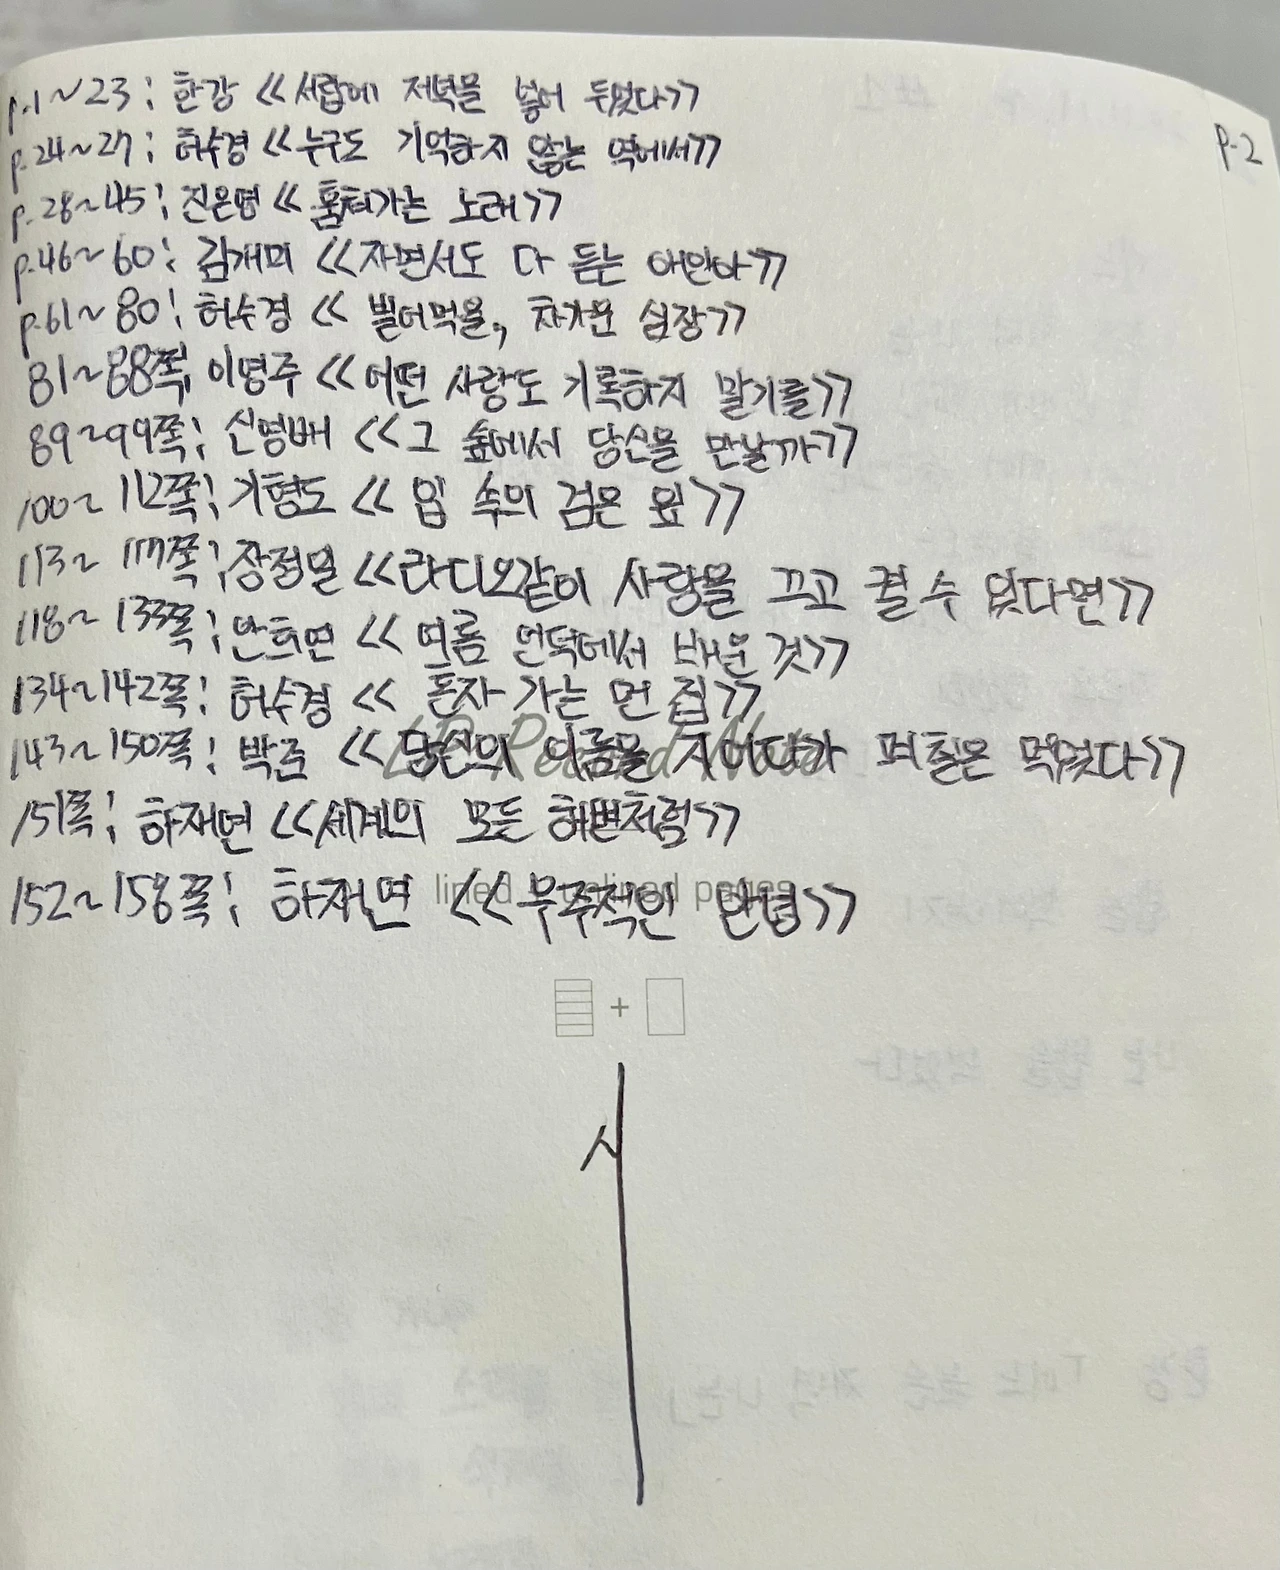 p.2
p.1~23: 한강 <<서랍에 저녁을 넣어 두었다>>
p.24~27: 허수경 <<누구도 기억하지 않는 역에서>>
p.28~45: 진은영 <<훔쳐가는 노래>>
p.46~60: 김개미 <<자면서도 다 듣는 애인아>>
p.61~80: 허수경 <<빌어먹을, 차가운 심장>>
81~88쪽; 이영주 <<어떤 사랑도 기록하지 말기를>>
89~99쪽; 신영배 <<그 숲에서 당신을 만날까>>
100~112쪽; 기형도 <<입 속의 검은 잎>>
113~117쪽; 장정일 <<라디오같이 사랑을 끄고 켤 수 있다면>>
118~133쪽; 안희연 <<여름 언덕에서 배운 것>>
134~142쪽: 허수경 <<혼자 가는 먼 집>>
143~150쪽: 박준 <<당신의 이름을 지어다가 며칠은 먹었다>>
151쪽; 하재연 <<세계의 모든 해변처럼>>
152~158쪽: 하재연 <<우주적인 안녕>>
lined + unlined pages
시